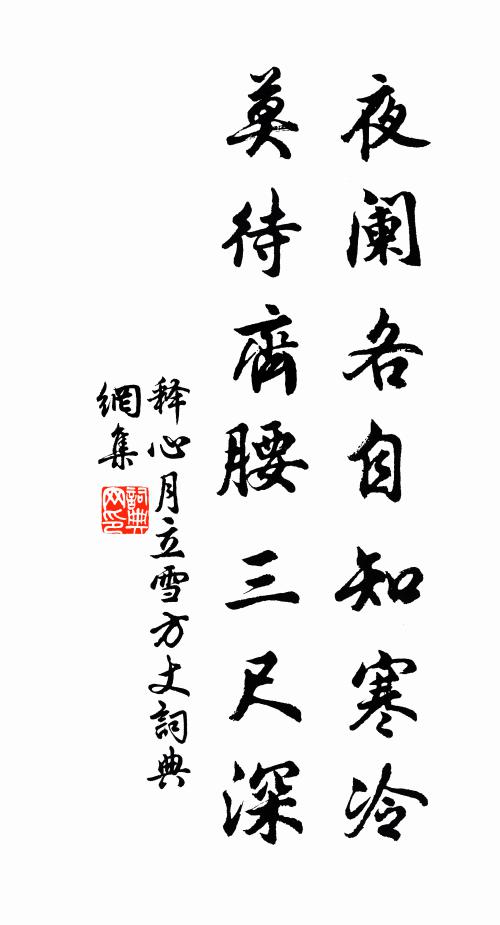 夜阑各自知寒冷
莫待齊腰三尺深
释心月立雪方丈詞典
網集
詞典网印